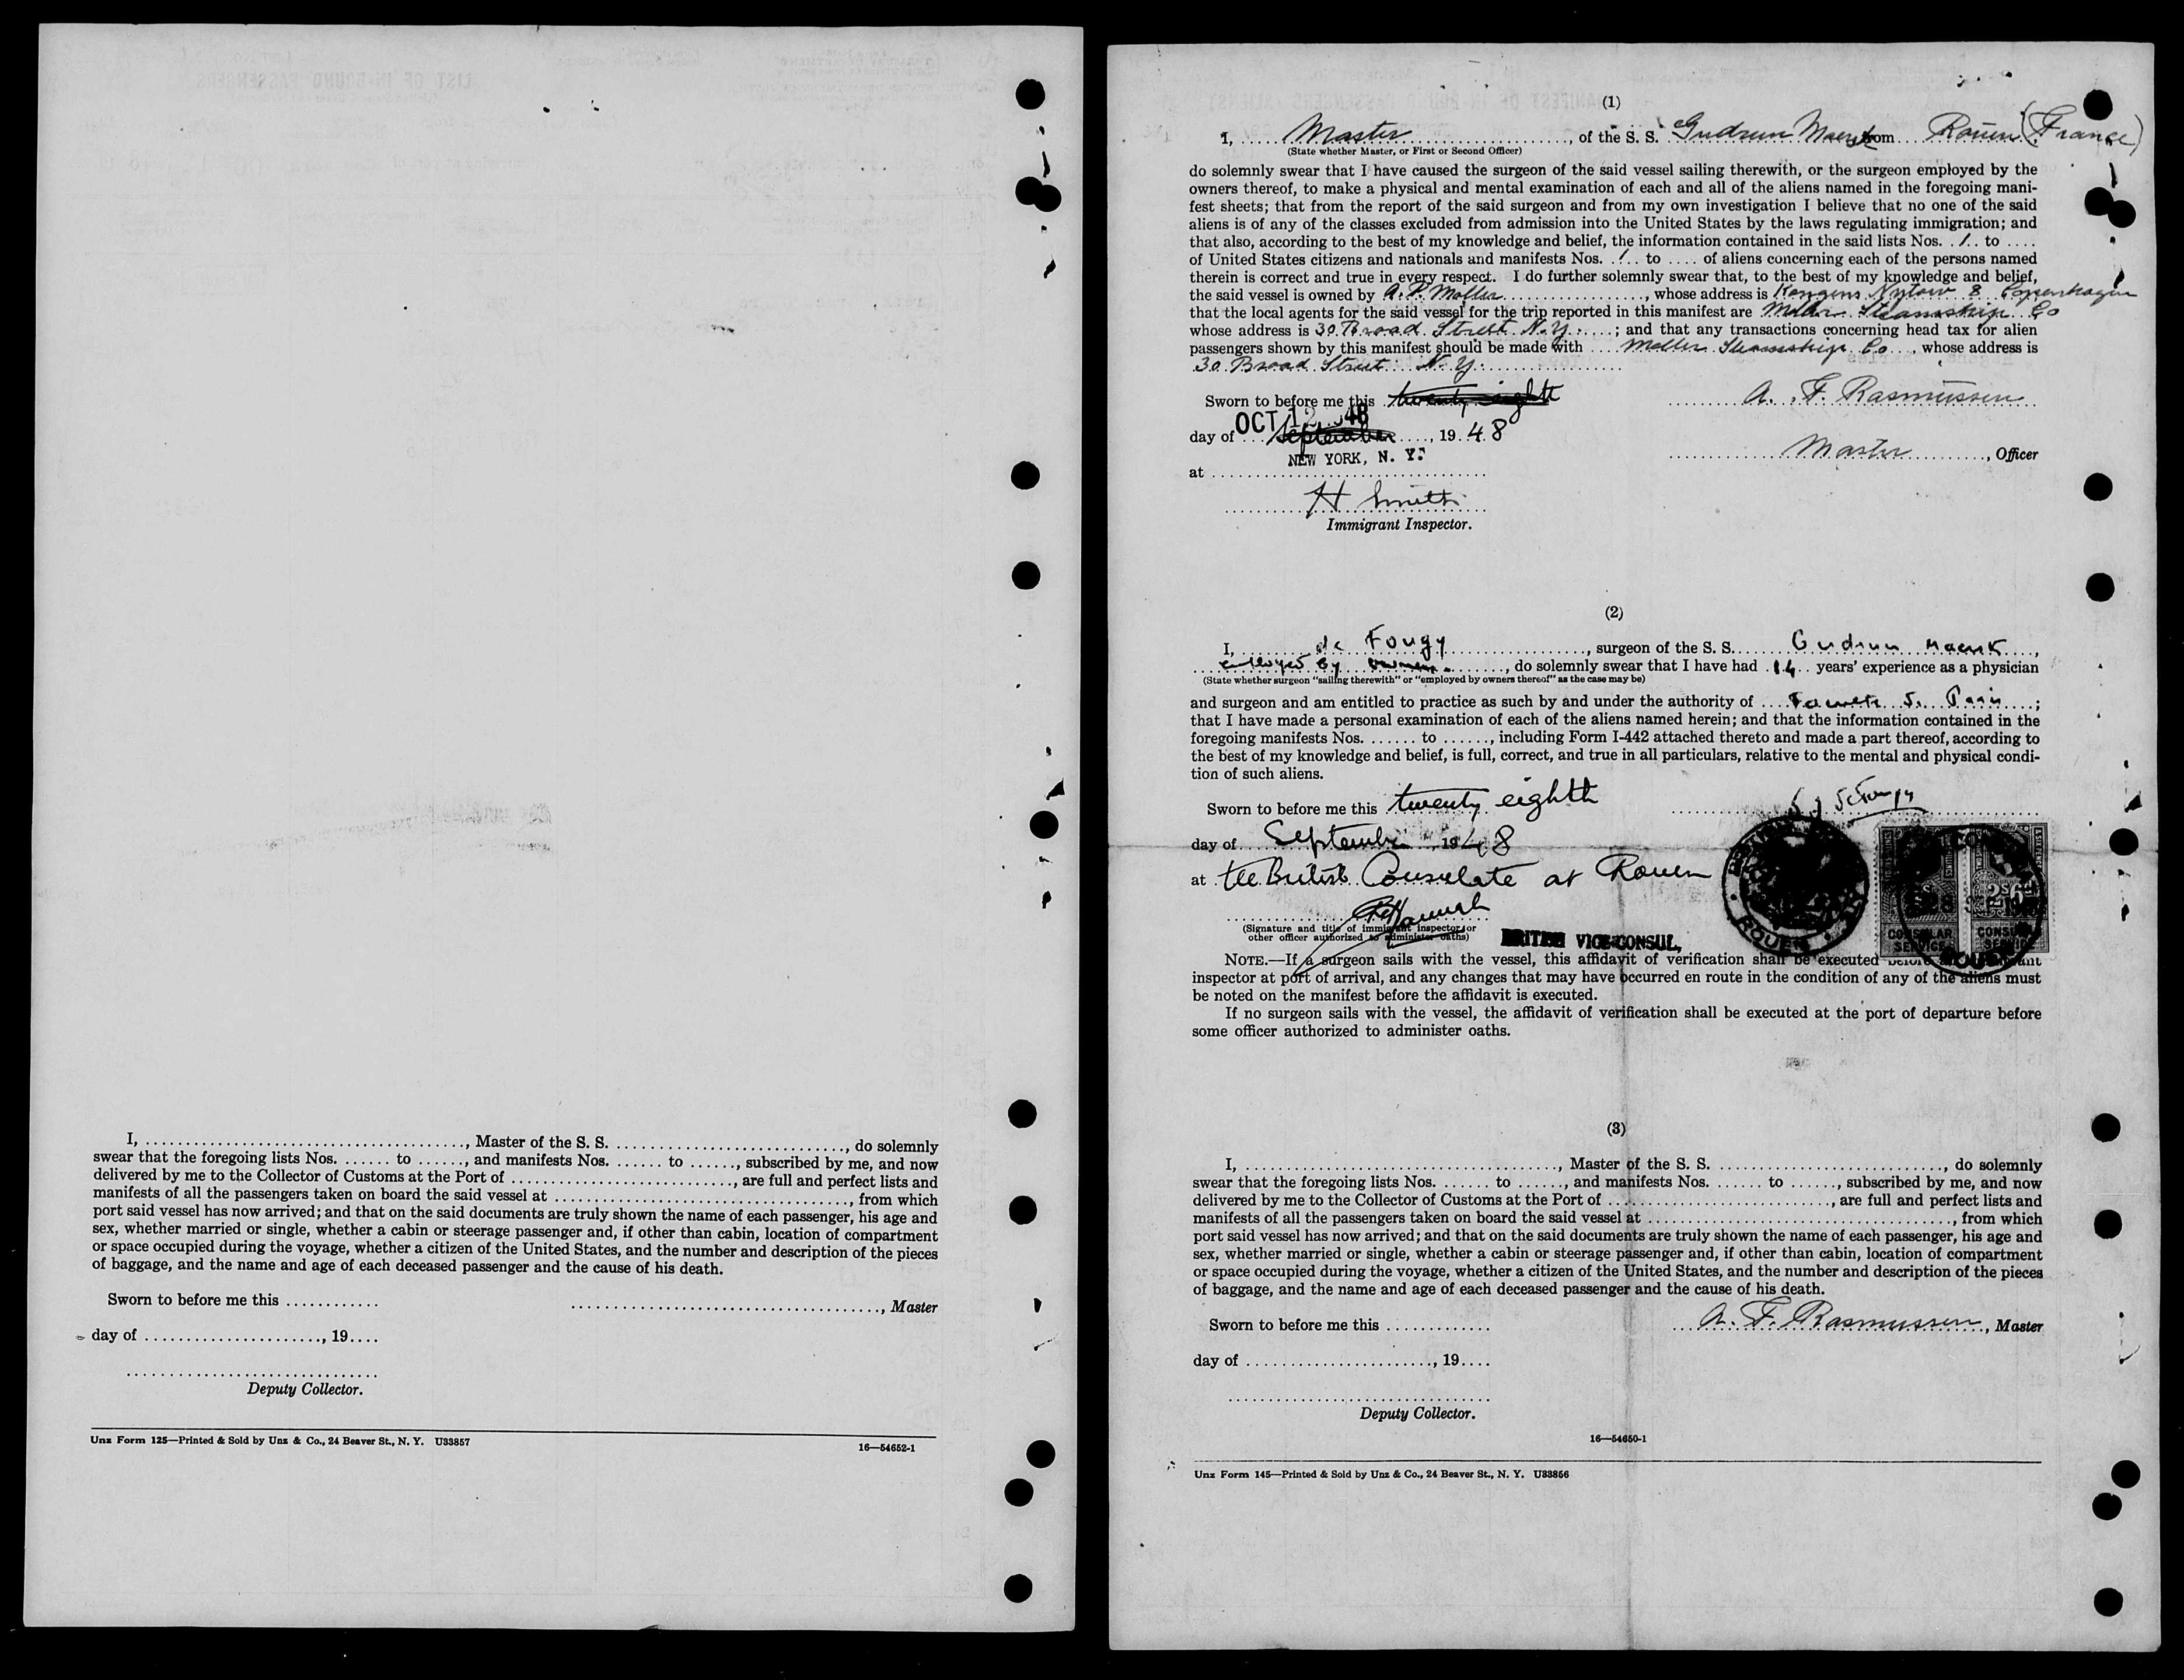 I, ........, Master of the S. S. ........, do solemnly
swear that the foregoing lists Nos. ....... to ......, and manifests Nos. ....... to ......, subscribed by me, and now
delivered by me to the Collector of Customs at the Port of ........, are full and perfect lists and
manifests of all the passengers taken on board the said vessel at ........, from which
port said vessel has now arrived; and that on the said documents are truly shown the name of each passenger, his age and
sex, whether married or single, whether a cabin or steerage passenger and, if other than cabin, location of compartment
or space occupied during the voyage, whether a citizen of the United States, and the number and description of the pieces
of baggage, and the name and age of each deceased passenger and the cause of his death.
Sworn to before me this ............
........, Master
day of ........, 19....
Deputy Collector.
Unz Form 125—Printed & Sold by Unz & Co., 24 Beaver St., N. Y. U33857
16—54652-1
(1)
I, Master, of the S. S. Gudrun Maersk from Rouen (France)
(State whether Master, or First or Second Officer)
do solemnly swear that I have caused the surgeon of the said vessel sailing therewith, or the surgeon employed by the
owners thereof, to make a physical and mental examination of each and all of the aliens named in the foregoing mani-
fest sheets; that from the report of the said surgeon and from my own investigation I believe that no one of the said
aliens is of any of the classes excluded from admission into the United States by the laws regulating immigration; and
that also, according to the best of my knowledge and belief, the information contained in the said lists Nos. 1 to ....
of United States citizens and nationals and manifests Nos. 1 to .... of aliens concerning each of the persons named
therein is correct and true in every respect. I do further solemnly swear that, to the best of my knowledge and belief,
the said vessel is owned by A. P. Moller, whose address is Kongens Nytorv 8 Copenhagen
that the local agents for the said vessel for the trip reported in this manifest are Moller Steamship Co
whose address is 30 Broad Street N.Y.; and that any transactions concerning head tax for alien
passengers shown by this manifest should be made with Moller Steamship Co, whose address is
30 Broad Street N.Y.
Sworn to before me this twenty eight
A. F. Rasmussen
OCT 12 48
day of September, 1948
Master, Officer
NEW YORK, N. Y.
at
H Smith
Immigrant Inspector.
(2)
I, de Fougy, surgeon of the S. S. Gudrun Maersk,
employed by owners, do solemnly swear that I have had 14 years' experience as a physician
(State whether surgeon "sailing therewith" or "employed by owners thereof" as the case may be)
and surgeon and am entitled to practice as such by and under the authority of Paris;
that I have made a personal examination of each of the aliens named herein; and that the information contained in the
foregoing manifests Nos. ....... to ......, including Form I-442 attached thereto and made a part thereof, according to
the best of my knowledge and belief, is full, correct, and true in all particulars, relative to the mental and physical condi-
tion of such aliens.
Sworn to before me this twenty eighth
day of September, 1948
at the British Consulate at Rouen
(Signature and title of immigrant inspector or
other officer authorized to administer oaths)
BRITISH VICE-CONSUL,
ROUEN
CONSULAR SERVICE
2s6d
CONSULAR SERVICE
NOTE.—If a surgeon sails with the vessel, this affidavit of verification shall be executed before an immigrant
inspector at port of arrival, and any changes that may have occurred en route in the condition of any of the aliens must
be noted on the manifest before the affidavit is executed.
If no surgeon sails with the vessel, the affidavit of verification shall be executed at the port of departure before
some officer authorized to administer oaths.
(3)
I, ........, Master of the S. S. ........, do solemnly
swear that the foregoing lists Nos. ....... to ......, and manifests Nos. ....... to ......, subscribed by me, and now
delivered by me to the Collector of Customs at the Port of ........, are full and perfect lists and
manifests of all the passengers taken on board the said vessel at ........, from which
port said vessel has now arrived; and that on the said documents are truly shown the name of each passenger, his age and
sex, whether married or single, whether a cabin or steerage passenger and, if other than cabin, location of compartment
or space occupied during the voyage, whether a citizen of the United States, and the number and description of the pieces
of baggage, and the name and age of each deceased passenger and the cause of his death.
Sworn to before me this ............
A. F. Rasmussen, Master
day of ........, 19....
Deputy Collector.
16—54650-1
Unz Form 145—Printed & Sold by Unz & Co., 24 Beaver St., N. Y. U33856